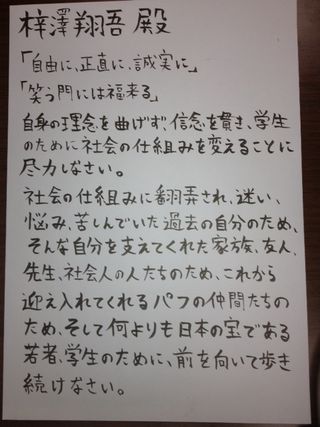 梓澤翔吾 殿
「自由に、正直に、誠実に」
「笑う門には福来る」
自身の理念を曲げず、信念を貫き、学生
のために社会の仕組みを変えることに
尽力しなさい。
社会の仕組みに翻弄され、迷い、
悩み、苦しんでいた過去の自分のため、
そんな自分を支えてくれた家族、友人、
先生、社会人の人たちのため、これから
迎え入れてくれるパフの仲間たちの
ため、そして何よりも日本の宝である
若者、学生のために、前を向いて歩き
続けなさい。